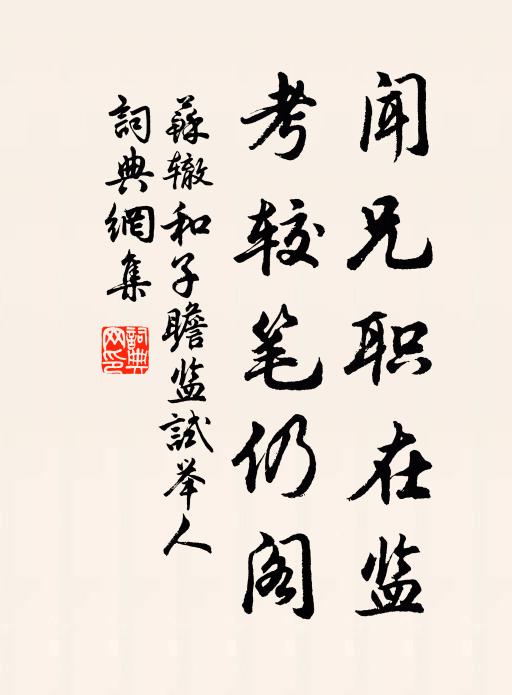 闻兄职在监
考较笔仍阁
蘇辙和子瞻监試举人
詞典網集
詞典网印